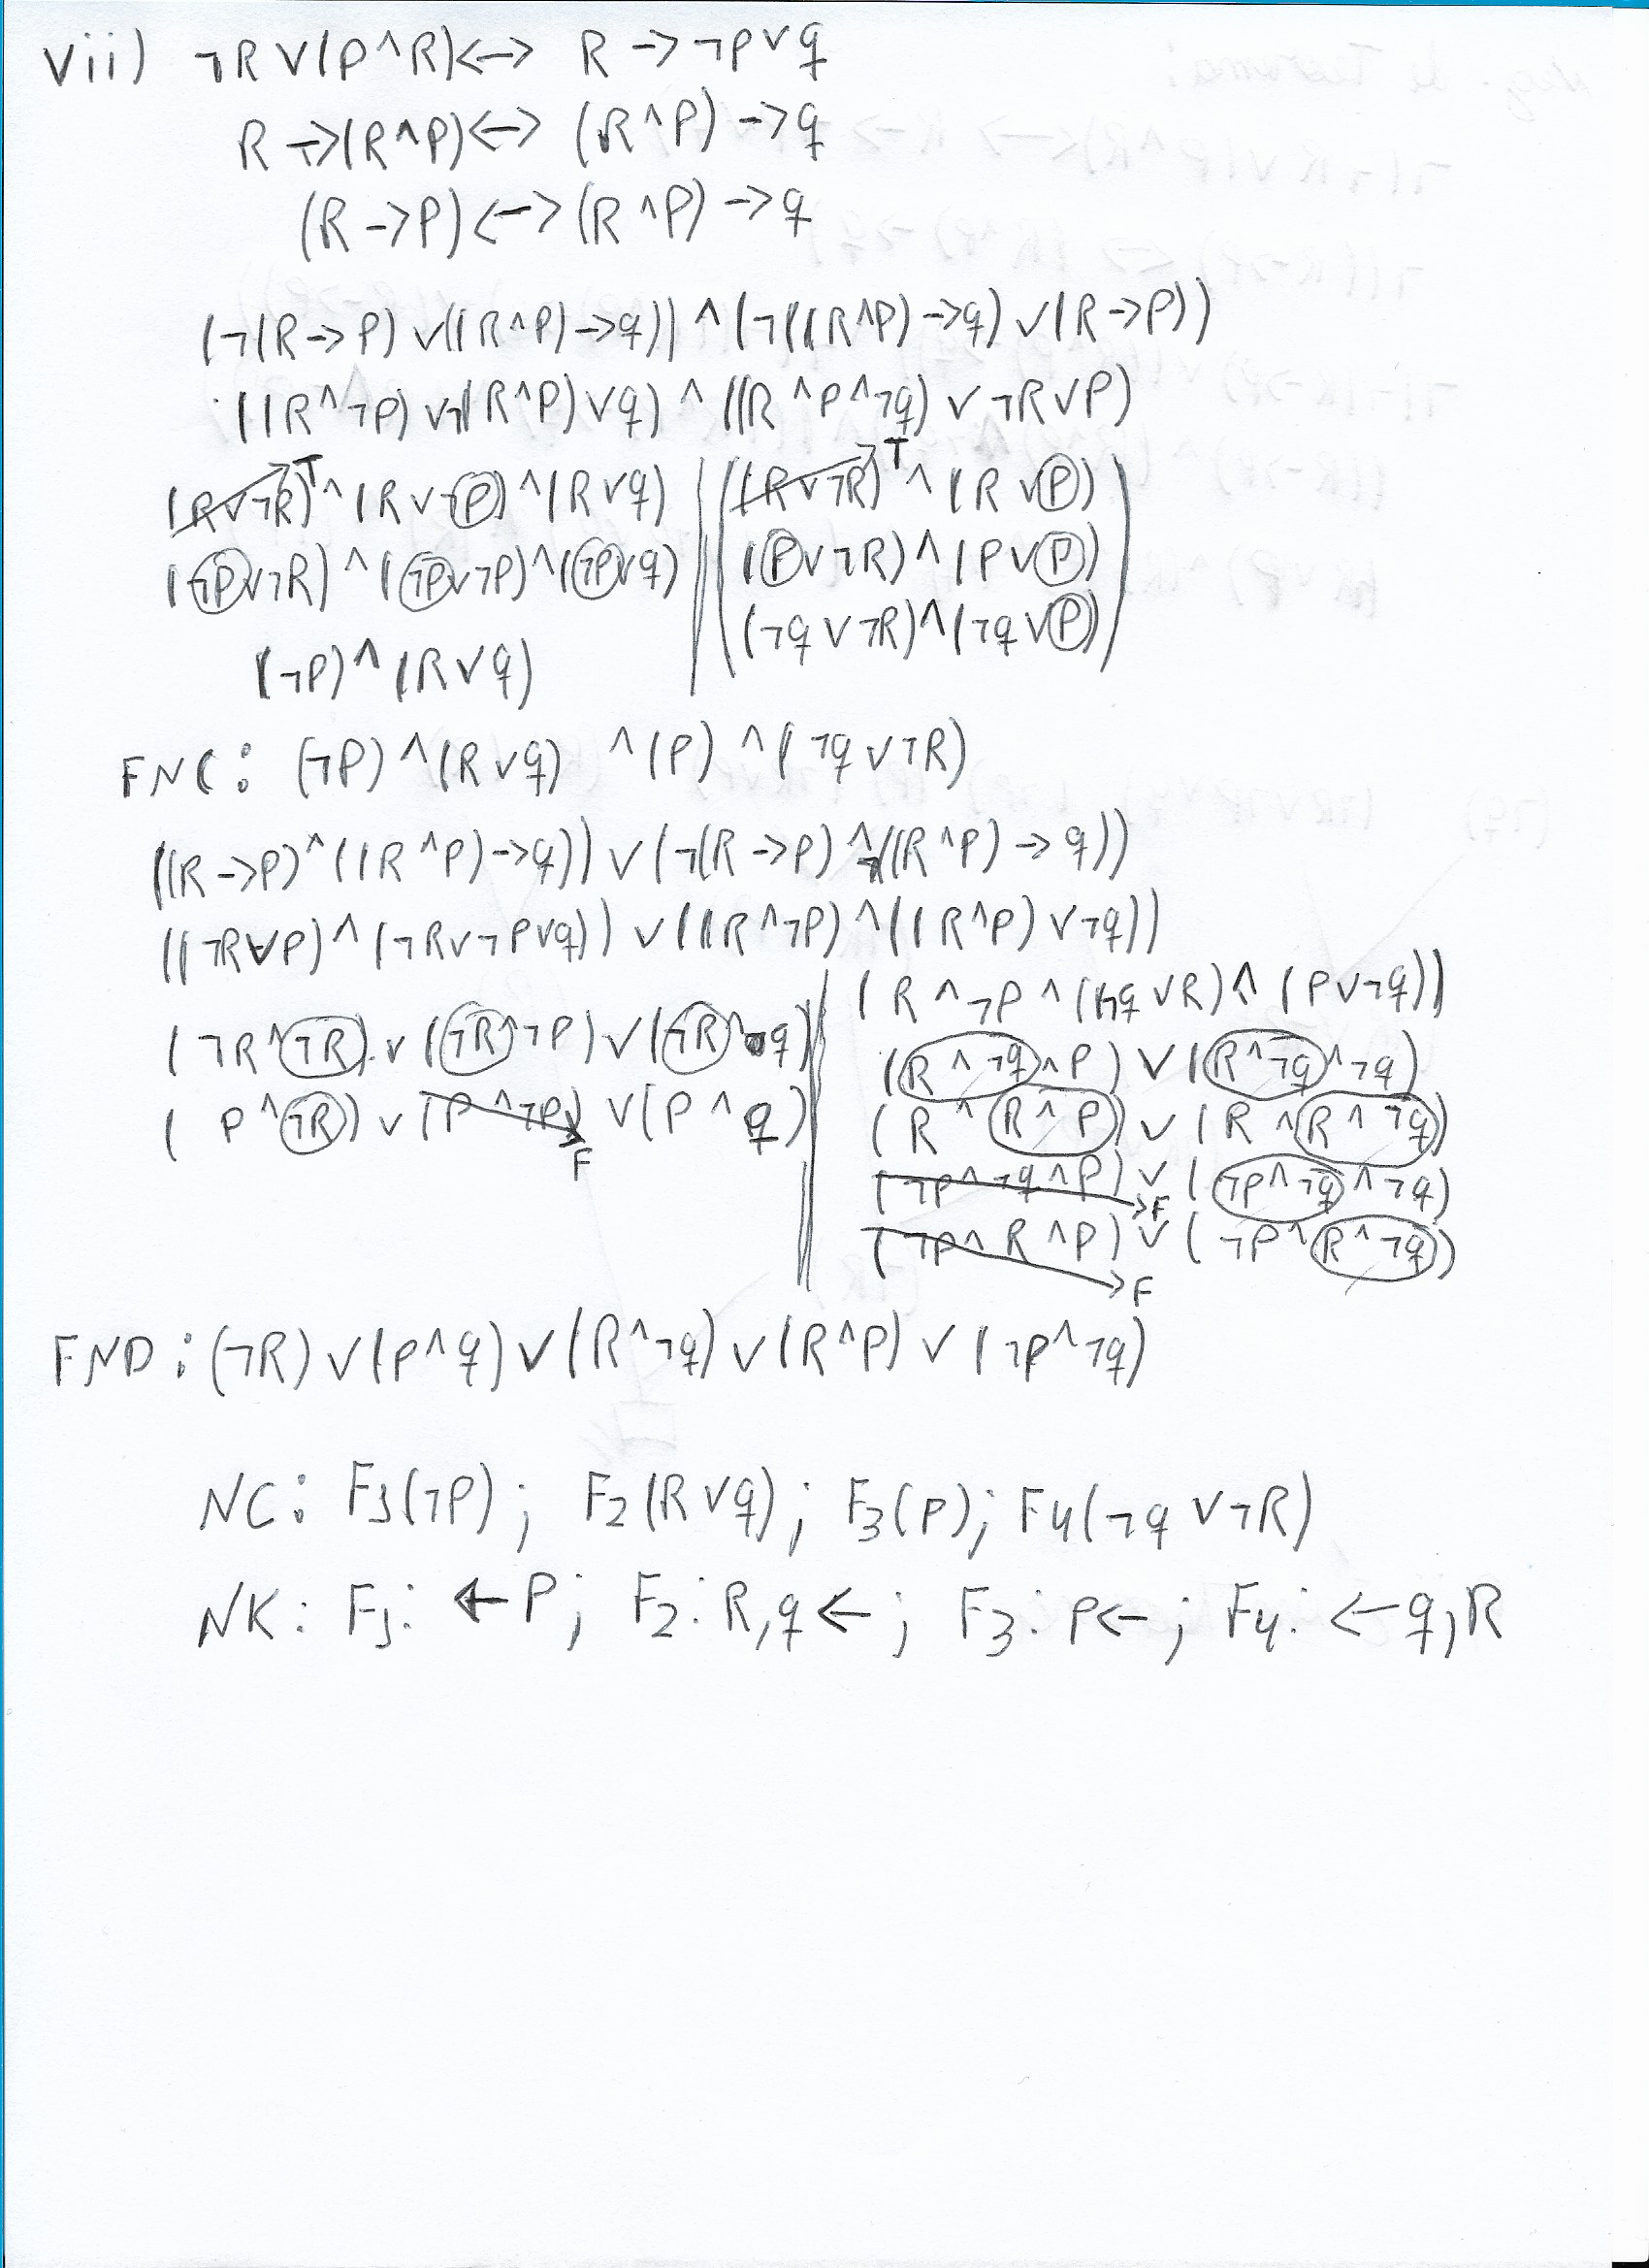 vii) ¬R ∨ (P ^ R) <-> R -> ¬P ∨ q
R -> (R ^ P) <-> (R ^ P) -> q
(R -> P) <-> (R ^ P) -> q
(¬(R -> P) ∨ ((R ^ P) -> q)) ^ (¬((R ^ P) -> q) ∨ (R -> P))
((R ^ ¬P) ∨ ¬(R ^ P) ∨ q) ^ ((R ^ P ^ ¬q) ∨ ¬R ∨ P)
(R ∨ ¬R) T ^ (R ∨ ¬P) ^ (R ∨ q) | (R ∨ ¬R) T ^ (R ∨ P)
(¬P ∨ ¬R) ^ (¬P ∨ ¬P) ^ (¬P ∨ q) | (P ∨ ¬R) ^ (P ∨ P)
(¬q ∨ ¬R) ^ (¬q ∨ P)
(¬P) ^ (R ∨ q)
FNC: (¬P) ^ (R ∨ q) ^ (P) ^ (¬q ∨ ¬R)
((R -> P) ^ ((R ^ P) -> q)) ∨ (¬(R -> P) ^ ¬((R ^ P) -> q))
((¬R ∨ P) ^ (¬R ∨ ¬P ∨ q)) ∨ ((R ^ ¬P) ^ ((R ^ P) ∨ ¬q))
(R ^ ¬P ^ (¬q ∨ R) ^ (P ∨ ¬q))
(¬R ^ ¬R) ∨ (¬R ^ ¬P) ∨ (¬R ^ q) | (R ^ ¬q ^ P) ∨ (R ^ ¬q ^ ¬q)
(P ^ ¬R) ∨ (P ^ ¬P) F ∨ (P ^ q) | (R ^ R ^ P) ∨ (R ^ R ^ ¬q)
(¬P ^ ¬q ^ P) F ∨ (¬P ^ ¬q ^ ¬q)
(¬P ^ R ^ P) F ∨ (¬P ^ R ^ ¬q)
FND: (¬R) ∨ (P ^ q) ∨ (R ^ ¬q) ∨ (R ^ P) ∨ (¬P ^ ¬q)
NC: F1(¬P); F2(R ∨ q); F3(P); F4(¬q ∨ ¬R)
NK: F1: <- P; F2: R, q <- ; F3: P <- ; F4: <- q, R